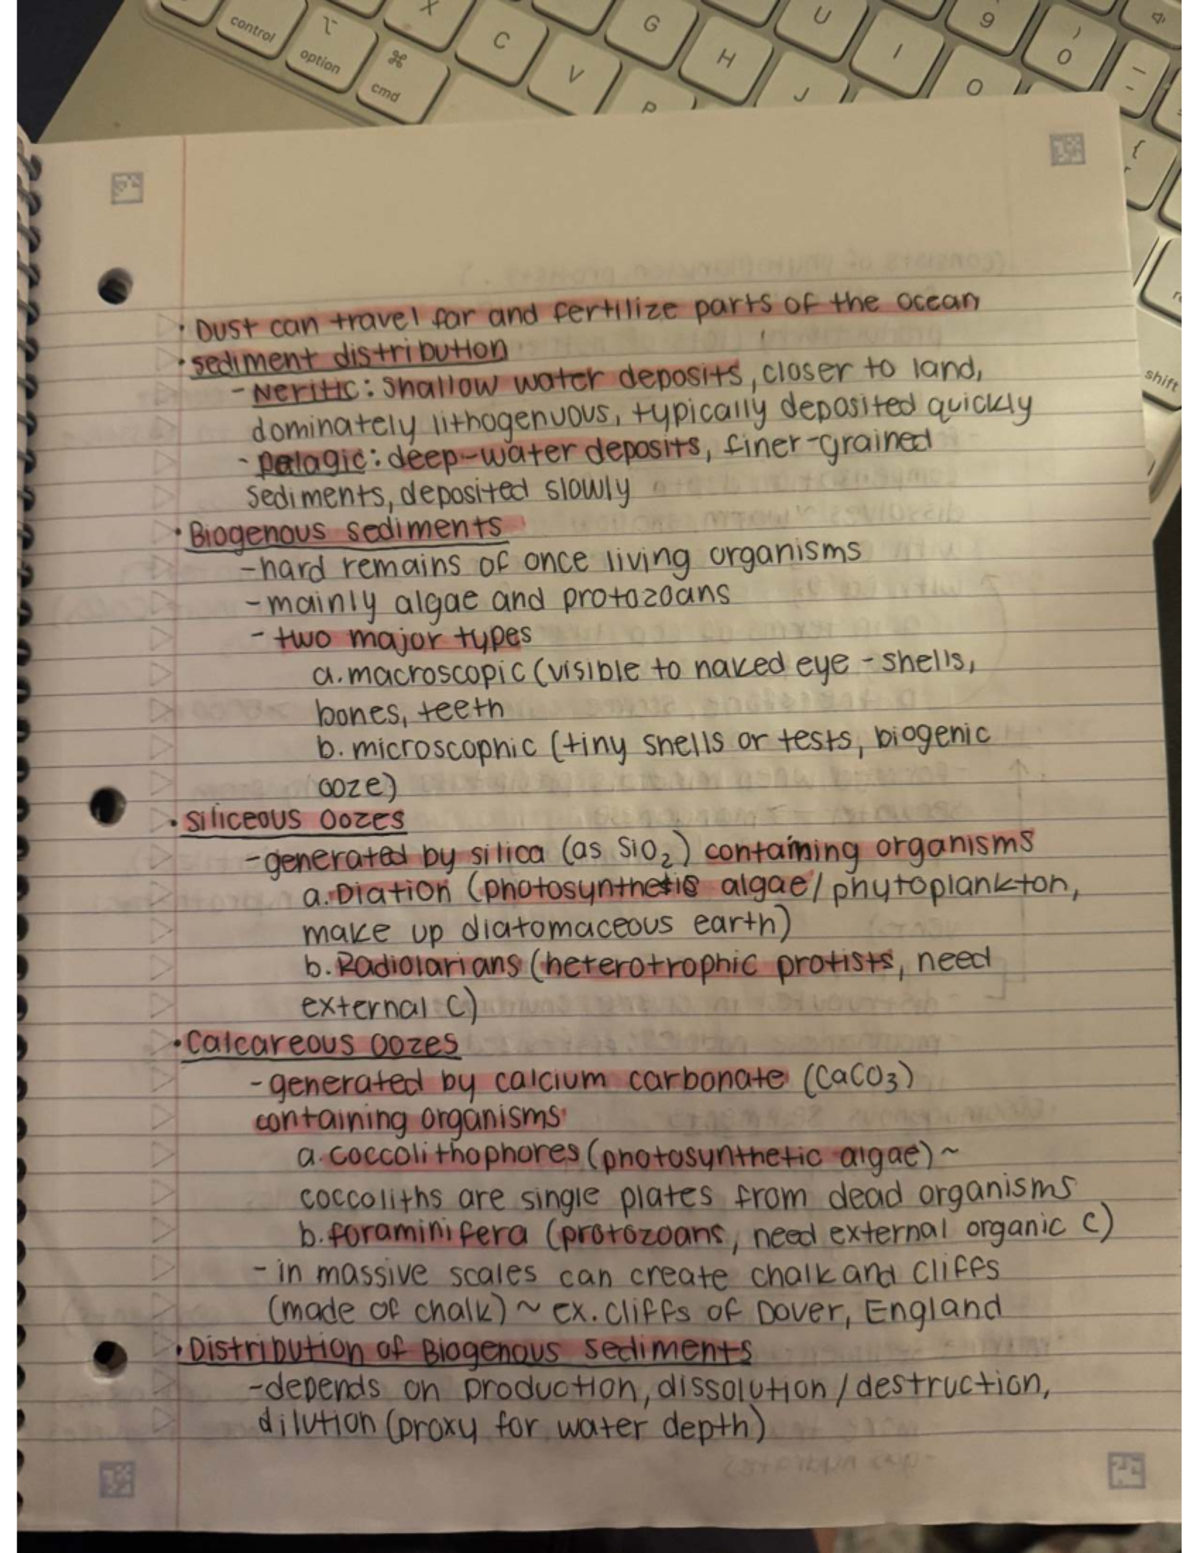 control
option
cmd
X
C
V
G
H
J
U
I
O
9
)
0
shift
• Dust can travel far and fertilize parts of the ocean
• sediment distribution
- Neritic: shallow water deposits, closer to land,
dominately lithogenuous, typically deposited quickly
- pelagic: deep-water deposits, finer-grained
sediments, deposited slowly
• Biogenous sediments
- hard remains of once living organisms
- mainly algae and protozoans
- two major types
a. macroscopic (visible to naked eye - shells,
bones, teeth
b. microscophic (tiny shells or tests, biogenic
ooze)
• siliceous oozes
- generated by silica (as SiO₂) containing organisms
a. Diation (photosynthetis algae/phytoplankton,
make up diatomaceous earth)
b. Radiolarians (heterotrophic protists, need
external C)
• Calcareous oozes
- generated by calcium carbonate (CaCO3)
containing organisms
a. coccolithophores (photosynthetic algae) ~
coccoliths are single plates from dead organisms
b. foraminifera (protozoans, need external organic C)
- in massive scales can create chalk and cliffs
(made of chalk) ~ ex. cliffs of Dover, England
• Distribution of Biogenous sediments
- depends on production, dissolution/destruction,
dilution (proxy for water depth)